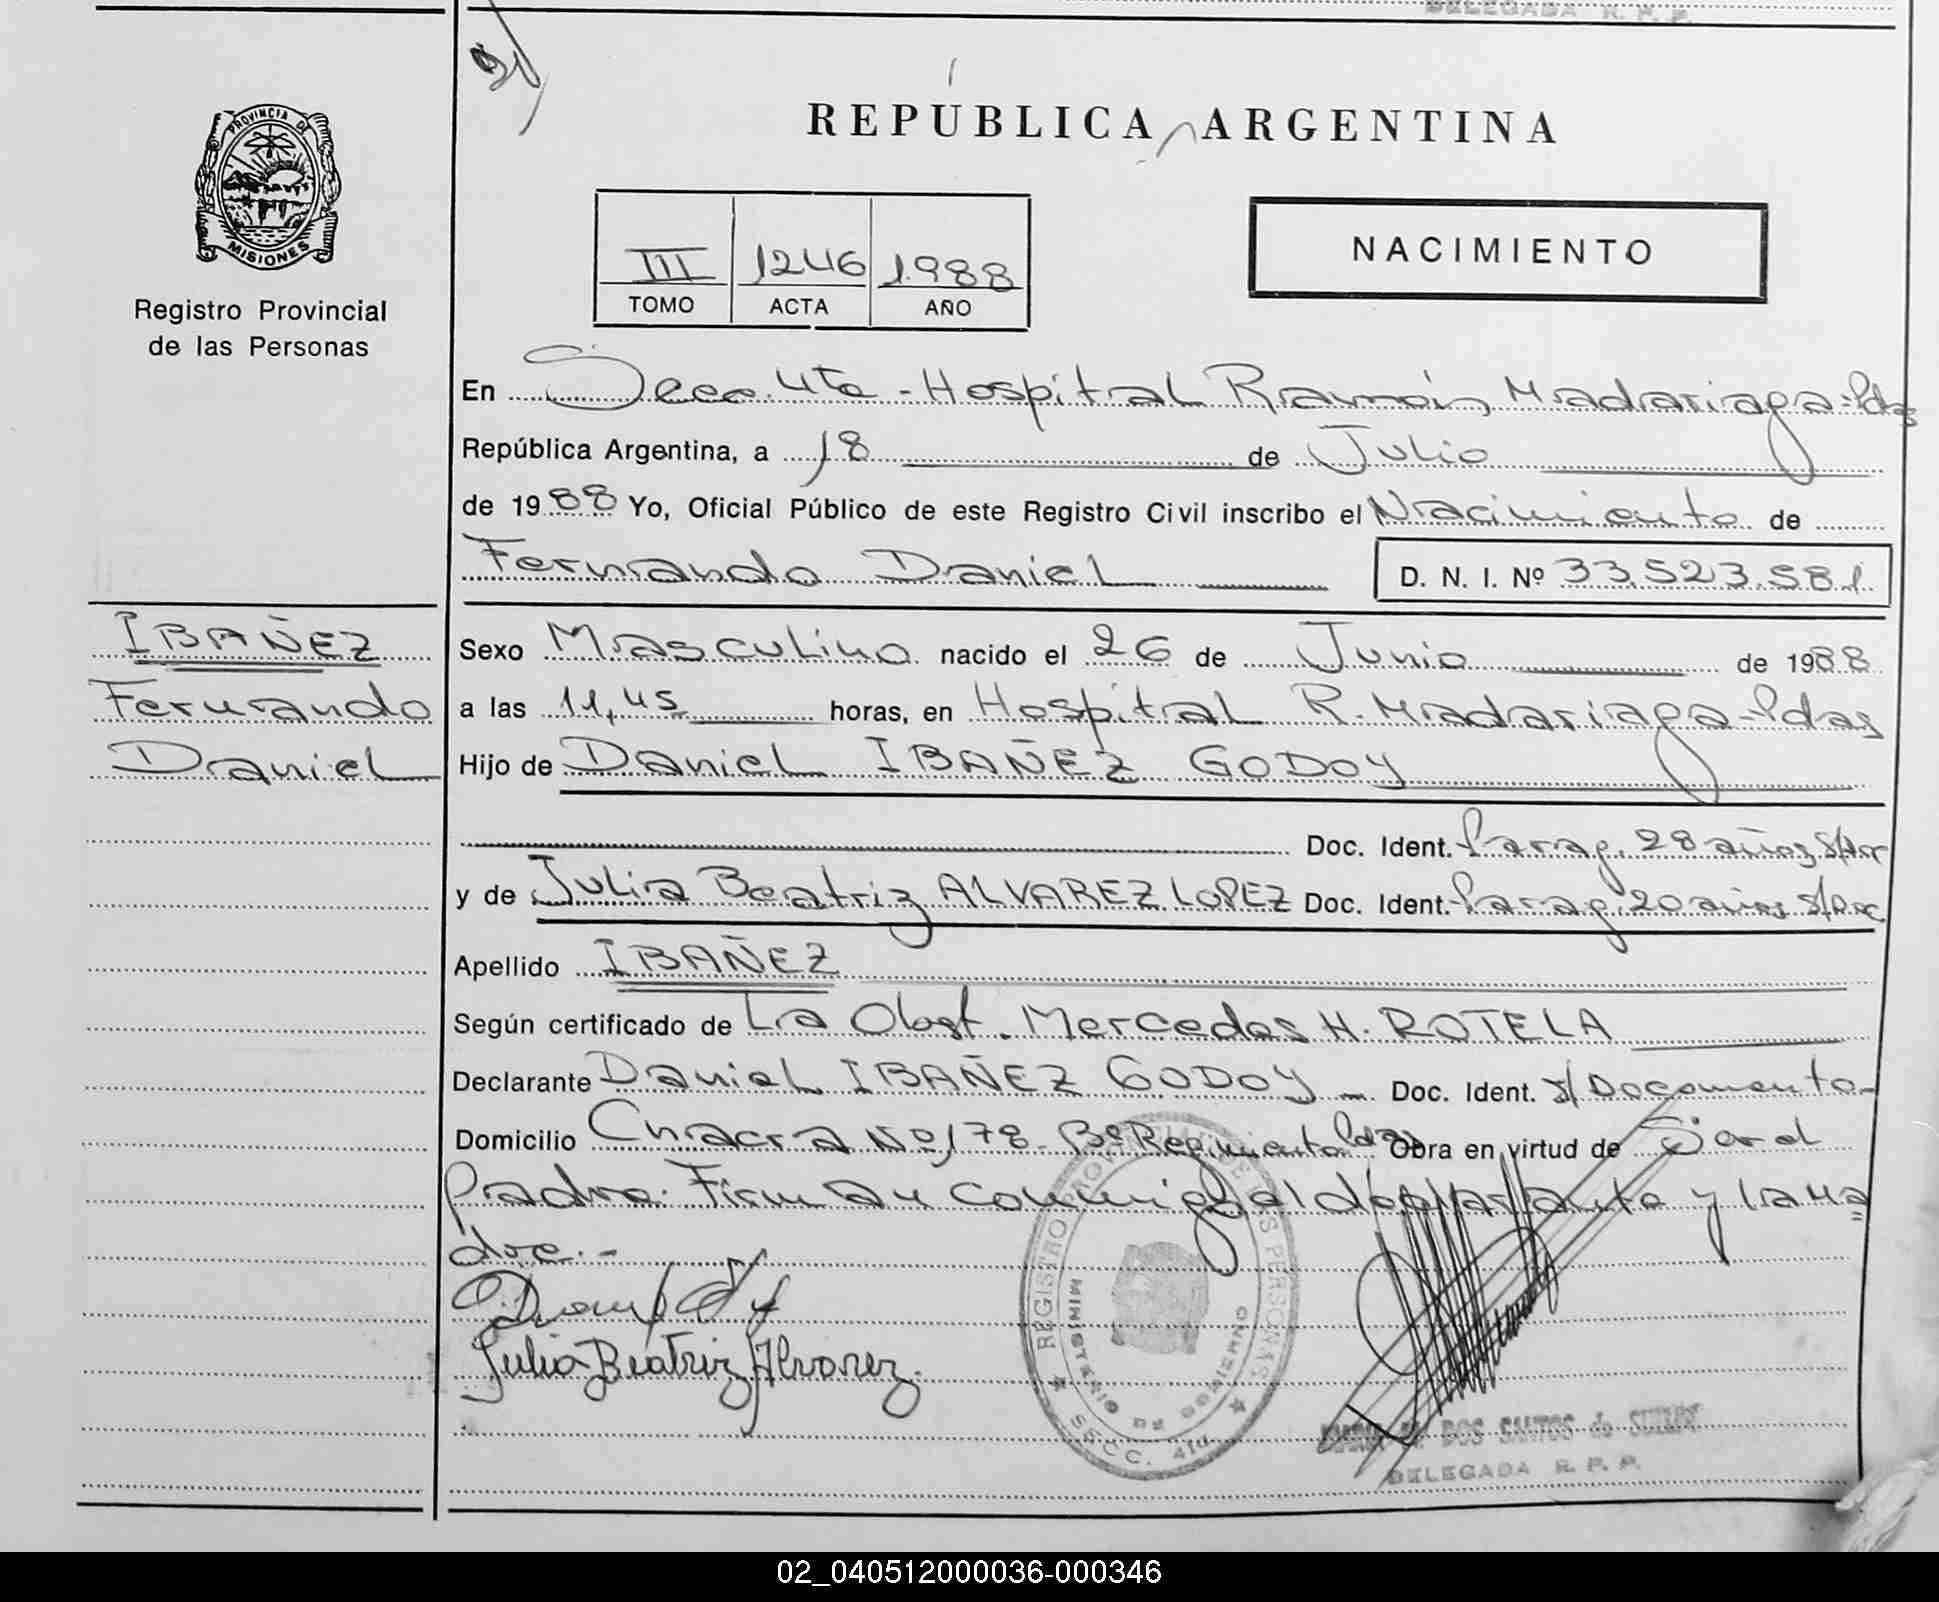 DELEGADA R. P. P.
REPÚBLICA ARGENTINA
PROVINCIA DE
MISIONES
Registro Provincial
de las Personas
III 1246 1988
TOMO ACTA AÑO
NACIMIENTO
En Secc. 4ta - Hospital Ramón Madariaga - Pdas
República Argentina, a 18 de Julio
de 1988 Yo, Oficial Público de este Registro Civil inscribo el Nacimiento de
Fernando Daniel D. N. I. Nº 33.523.581
IBAÑEZ
Fernando
Daniel
Sexo Masculino nacido el 26 de Junio de 1988
a las 11,45 horas, en Hospital R. Madariaga - Pdas
Hijo de Daniel IBAÑEZ GODOY
Doc. Ident. Parag. 28 años s/Doc
y de Julia Beatriz ALVAREZ LOPEZ Doc. Ident. Parag. 20 años s/Doc
Apellido IBAÑEZ
Según certificado de La Obst. Mercedes H. ROTELA
Declarante Daniel IBAÑEZ GODOY Doc. Ident. s/Documento-
Domicilio Chacra Nº 178 - Bº Regimiento Pdas Obra en virtud de Ser el
Padre. Firman conmigo el declarante y la ma
dre.-
Julia Beatriz Alvarez.
REGISTRO PROVINCIAL DE LAS PERSONAS
MINISTERIO DE GOBIERNO
SECC. 4ta
DOS SANTOS de
DELEGADA R. P. P.
02_040512000036-000346